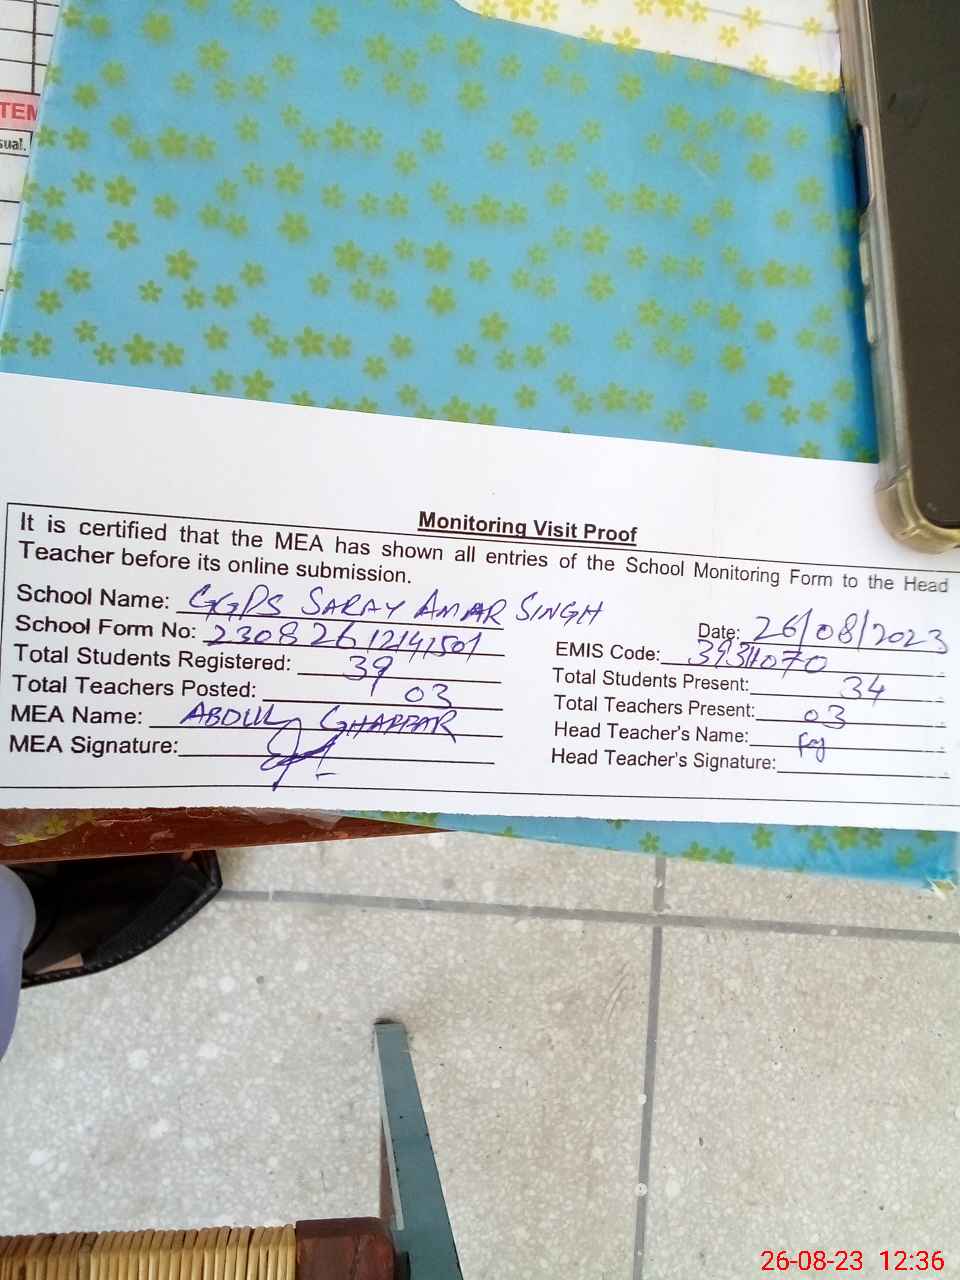 TEM
sual.
Monitoring Visit Proof
It is certified that the MEA has shown all entries of the School Monitoring Form to the Head
Teacher before its online submission.
School Name: GGPS SARAY AMAR SINGH
Date: 26/08/2023
School Form No: 23082612141501
EMIS Code: 39311070
Total Students Registered: 39
Total Students Present: 34
Total Teachers Posted: 03
Total Teachers Present: 03
MEA Name: ABDUL GHAFFAR
Head Teacher's Name:
MEA Signature:
Head Teacher's Signature:
26-08-23 12:36